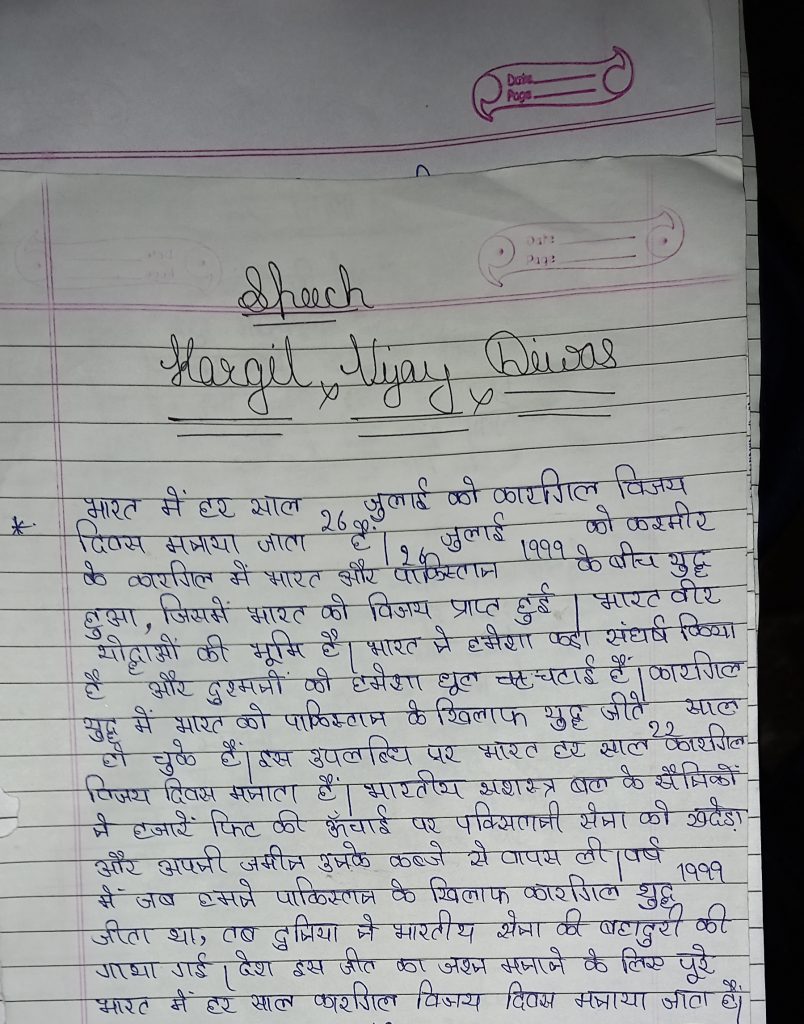 Date
Page
Speech
Kargil x Vijay x Diwas
* भारत में हर साल 26 जुलाई को कारगिल विजय
दिवस मनाया जाता है। 26 जुलाई 1999 को कश्मीर
के कारगिल में भारत और पाकिस्तान के बीच युद्ध
हुआ, जिसमें भारत को विजय प्राप्त हुई। भारत वीर
योद्धाओं की भूमि है। भारत ने हमेशा कड़ा संघर्ष किया
है और दुश्मनों को हमेशा धूल चटाई हैं। कारगिल
युद्ध में भारत को पाकिस्तान के खिलाफ युद्ध जीते 22 साल
हो चुके हैं। इस उपलब्धि पर भारत हर साल कारगिल
विजय दिवस मनाता हैं। भारतीय सशस्त्र बल के सैनिकों
ने हजारों फिट की ऊँचाई पर पकिस्तानी सेना को खदेड़ा
और अपनी जमीन उनके कब्जे से वापस ली। वर्ष 1999
में जब हमने पाकिस्तान के खिलाफ कारगिल युद्ध
जीता था, तब दुनिया ने भारतीय सेना की बहादुरी की
गाथा गाई। देश इस जीत का जश्न मनाने के लिए पूरे
भारत में हर साल कारगिल विजय दिवस मनाया जाता हैं।